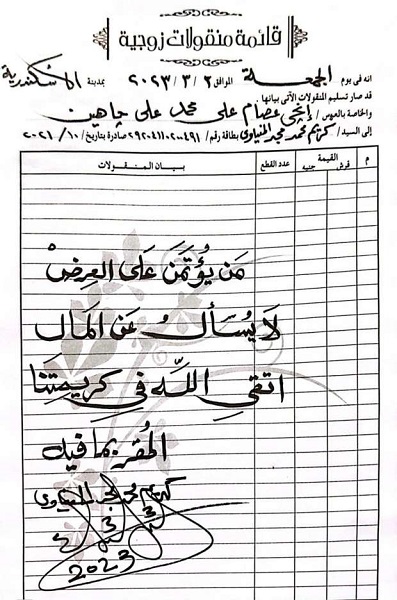 قائمة منقولات زوجية
انه في يوم الجمعة الموافق ٢٠٢٣/٣/٣ بمدينة الاسكندرية
قد صار تسليم المنقولات الآتى بيانها.
والخاصة بالعروس / إنجي عصام على محمد على چاهين
إلى السيد / كريم محمد مجد المنياوى بطاقة رقم / صادرة بتاريخ / ٢٠٢١/١٠
م القيمة عدد القطع بيان المنقولات
قرش جنيه
مَن يُؤتَمَنَ عَلى العِرضْ
لَا يُسَألُ عَنْ المَال
اتقي اللَّه في كريمتَنا
المُقر بما فيه
كريم محمد مجد المنياوى
3
3
2023